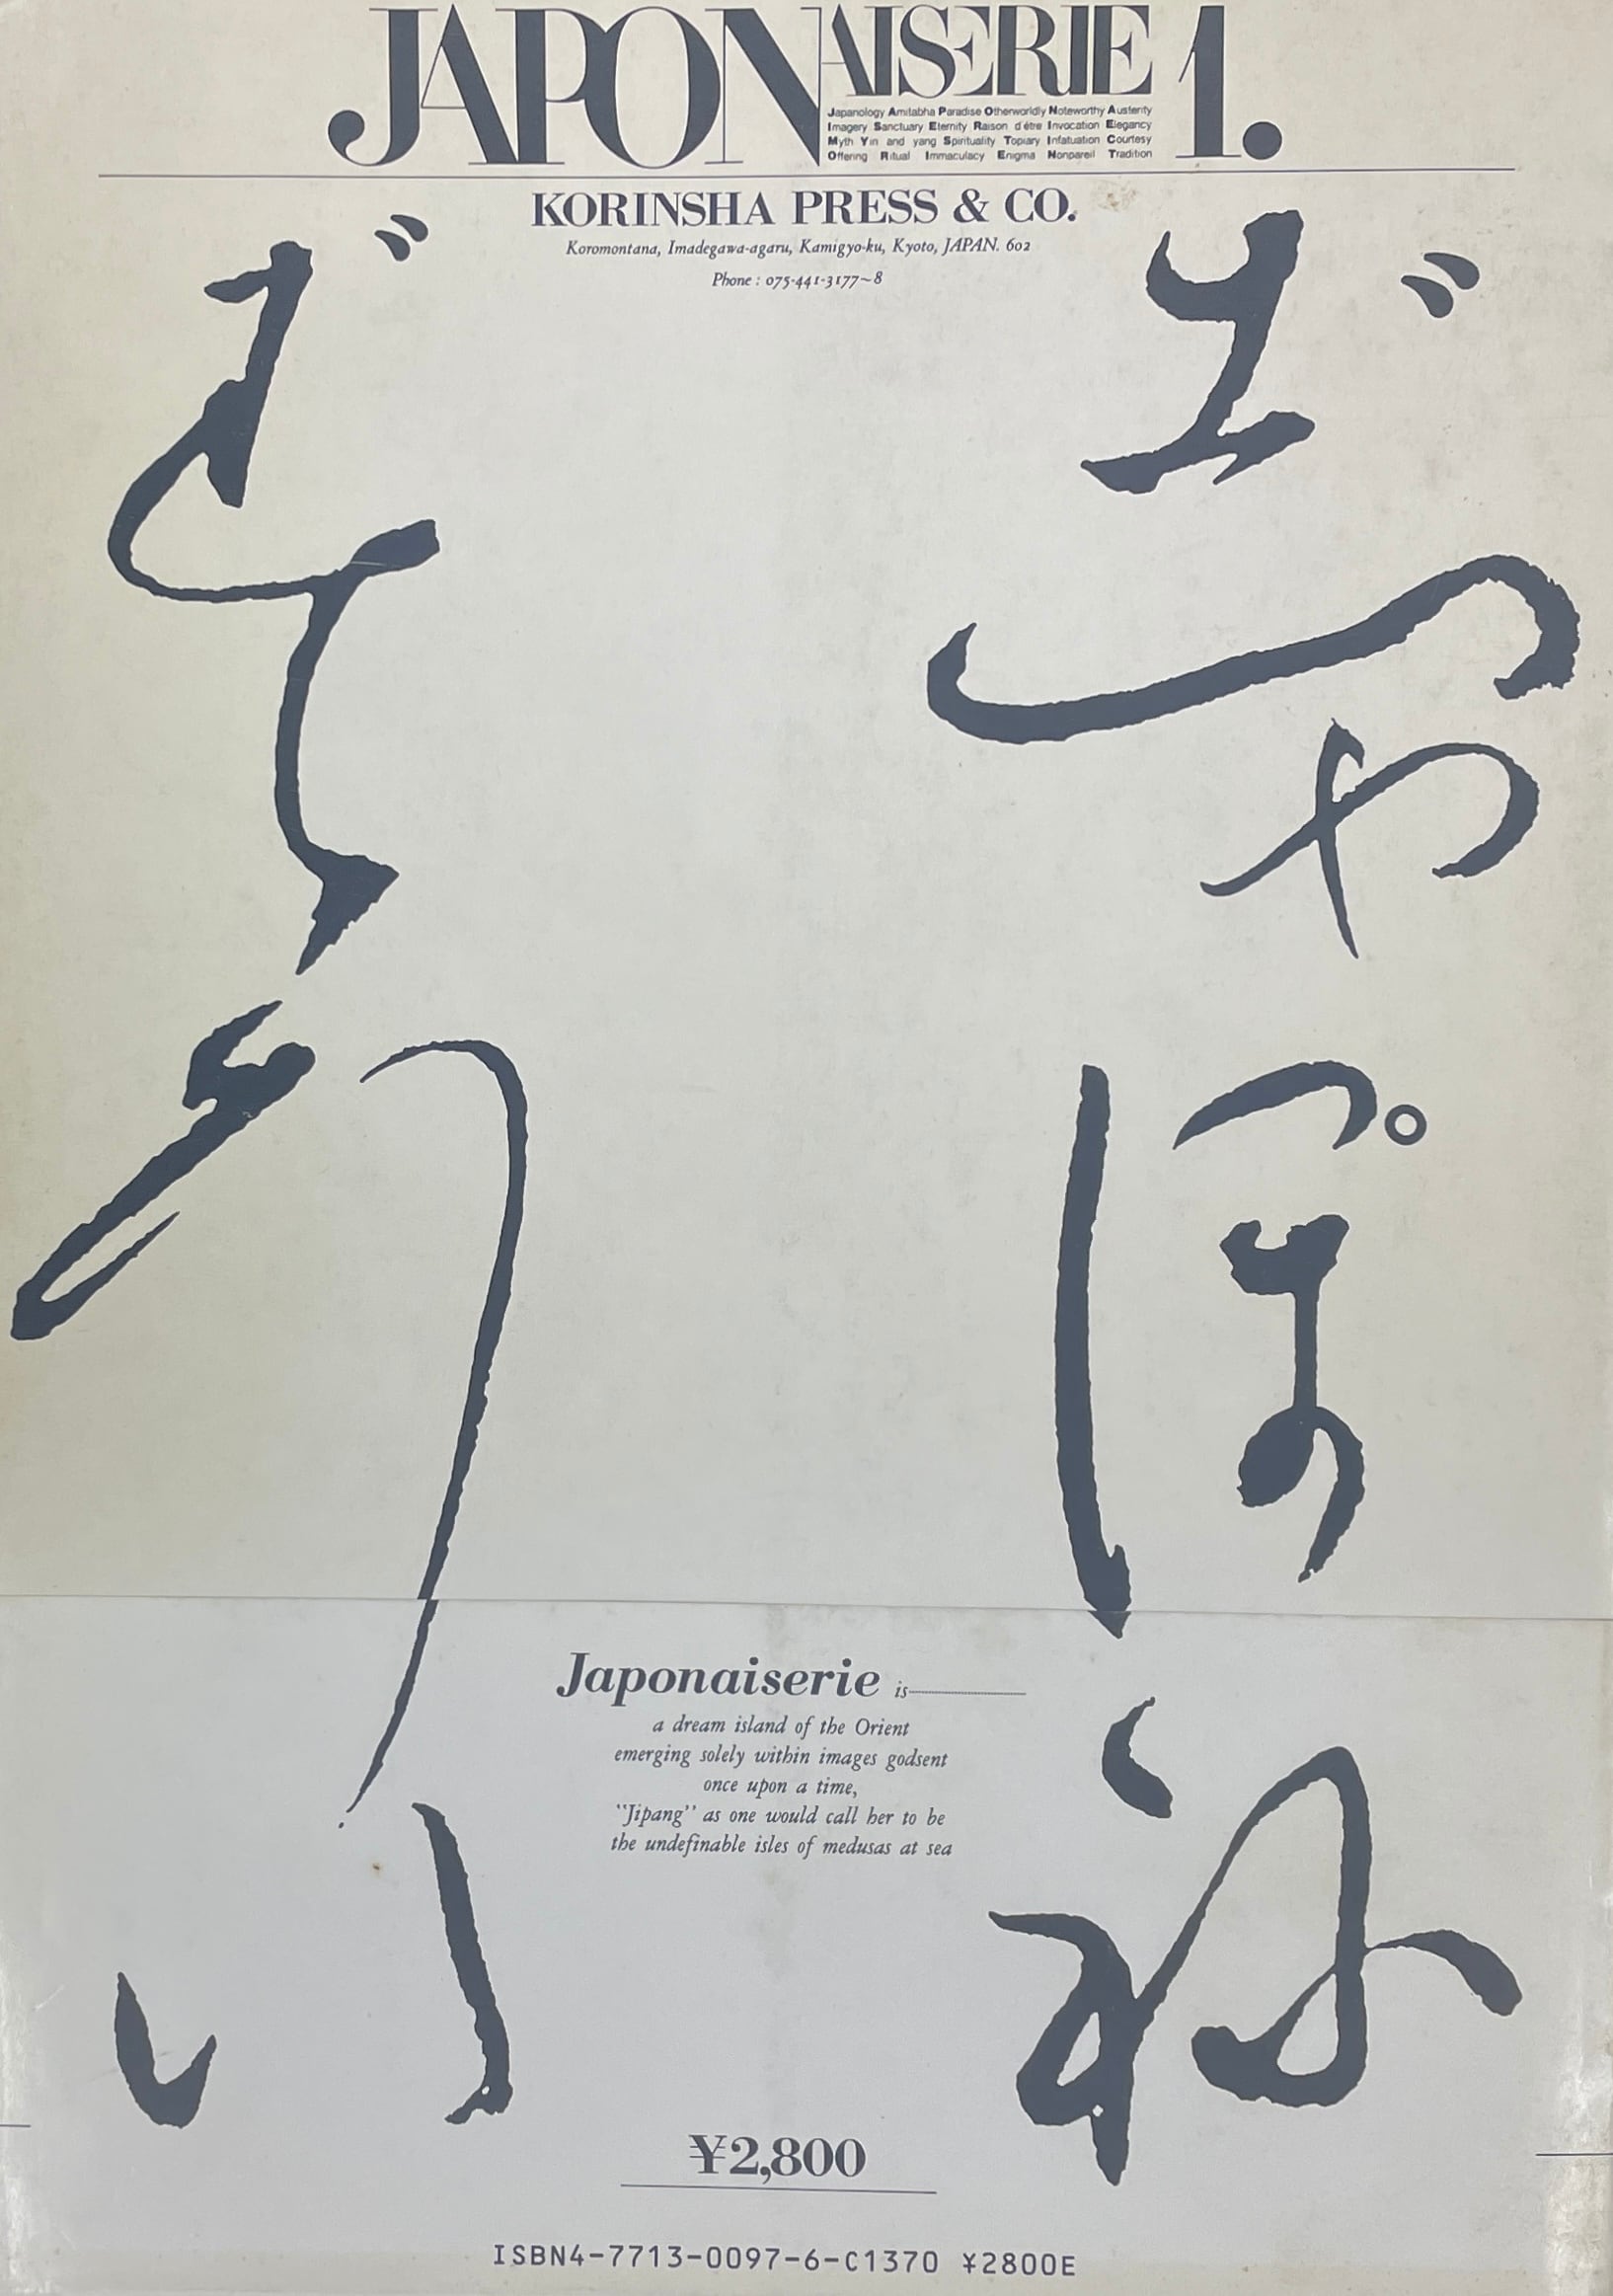 JAPONAISERIE 1.
Japanology Amitabha Paradise Otherworldly Noteworthy Austerity
Imagery Sanctuary Eternity Raison d'être Invocation Elegancy
Myth Yin and yang Spirituality Topiary Infatuation Courtesy
Offering Ritual Immaculacy Enigma Nonpareil Tradition
KORINSHA PRESS & CO.
Koromontana, Imadegawa-agaru, Kamigyo-ku, Kyoto, JAPAN. 602
Phone : 075-441-3177~8
じやぽね
ぜりい
Japonaiserie is
a dream island of the Orient
emerging solely within images godsent
once upon a time,
"Jipang" as one would call her to be
the undefinable isles of medusas at sea
¥2,800
ISBN4-7713-0097-6-C1370 ¥2800E